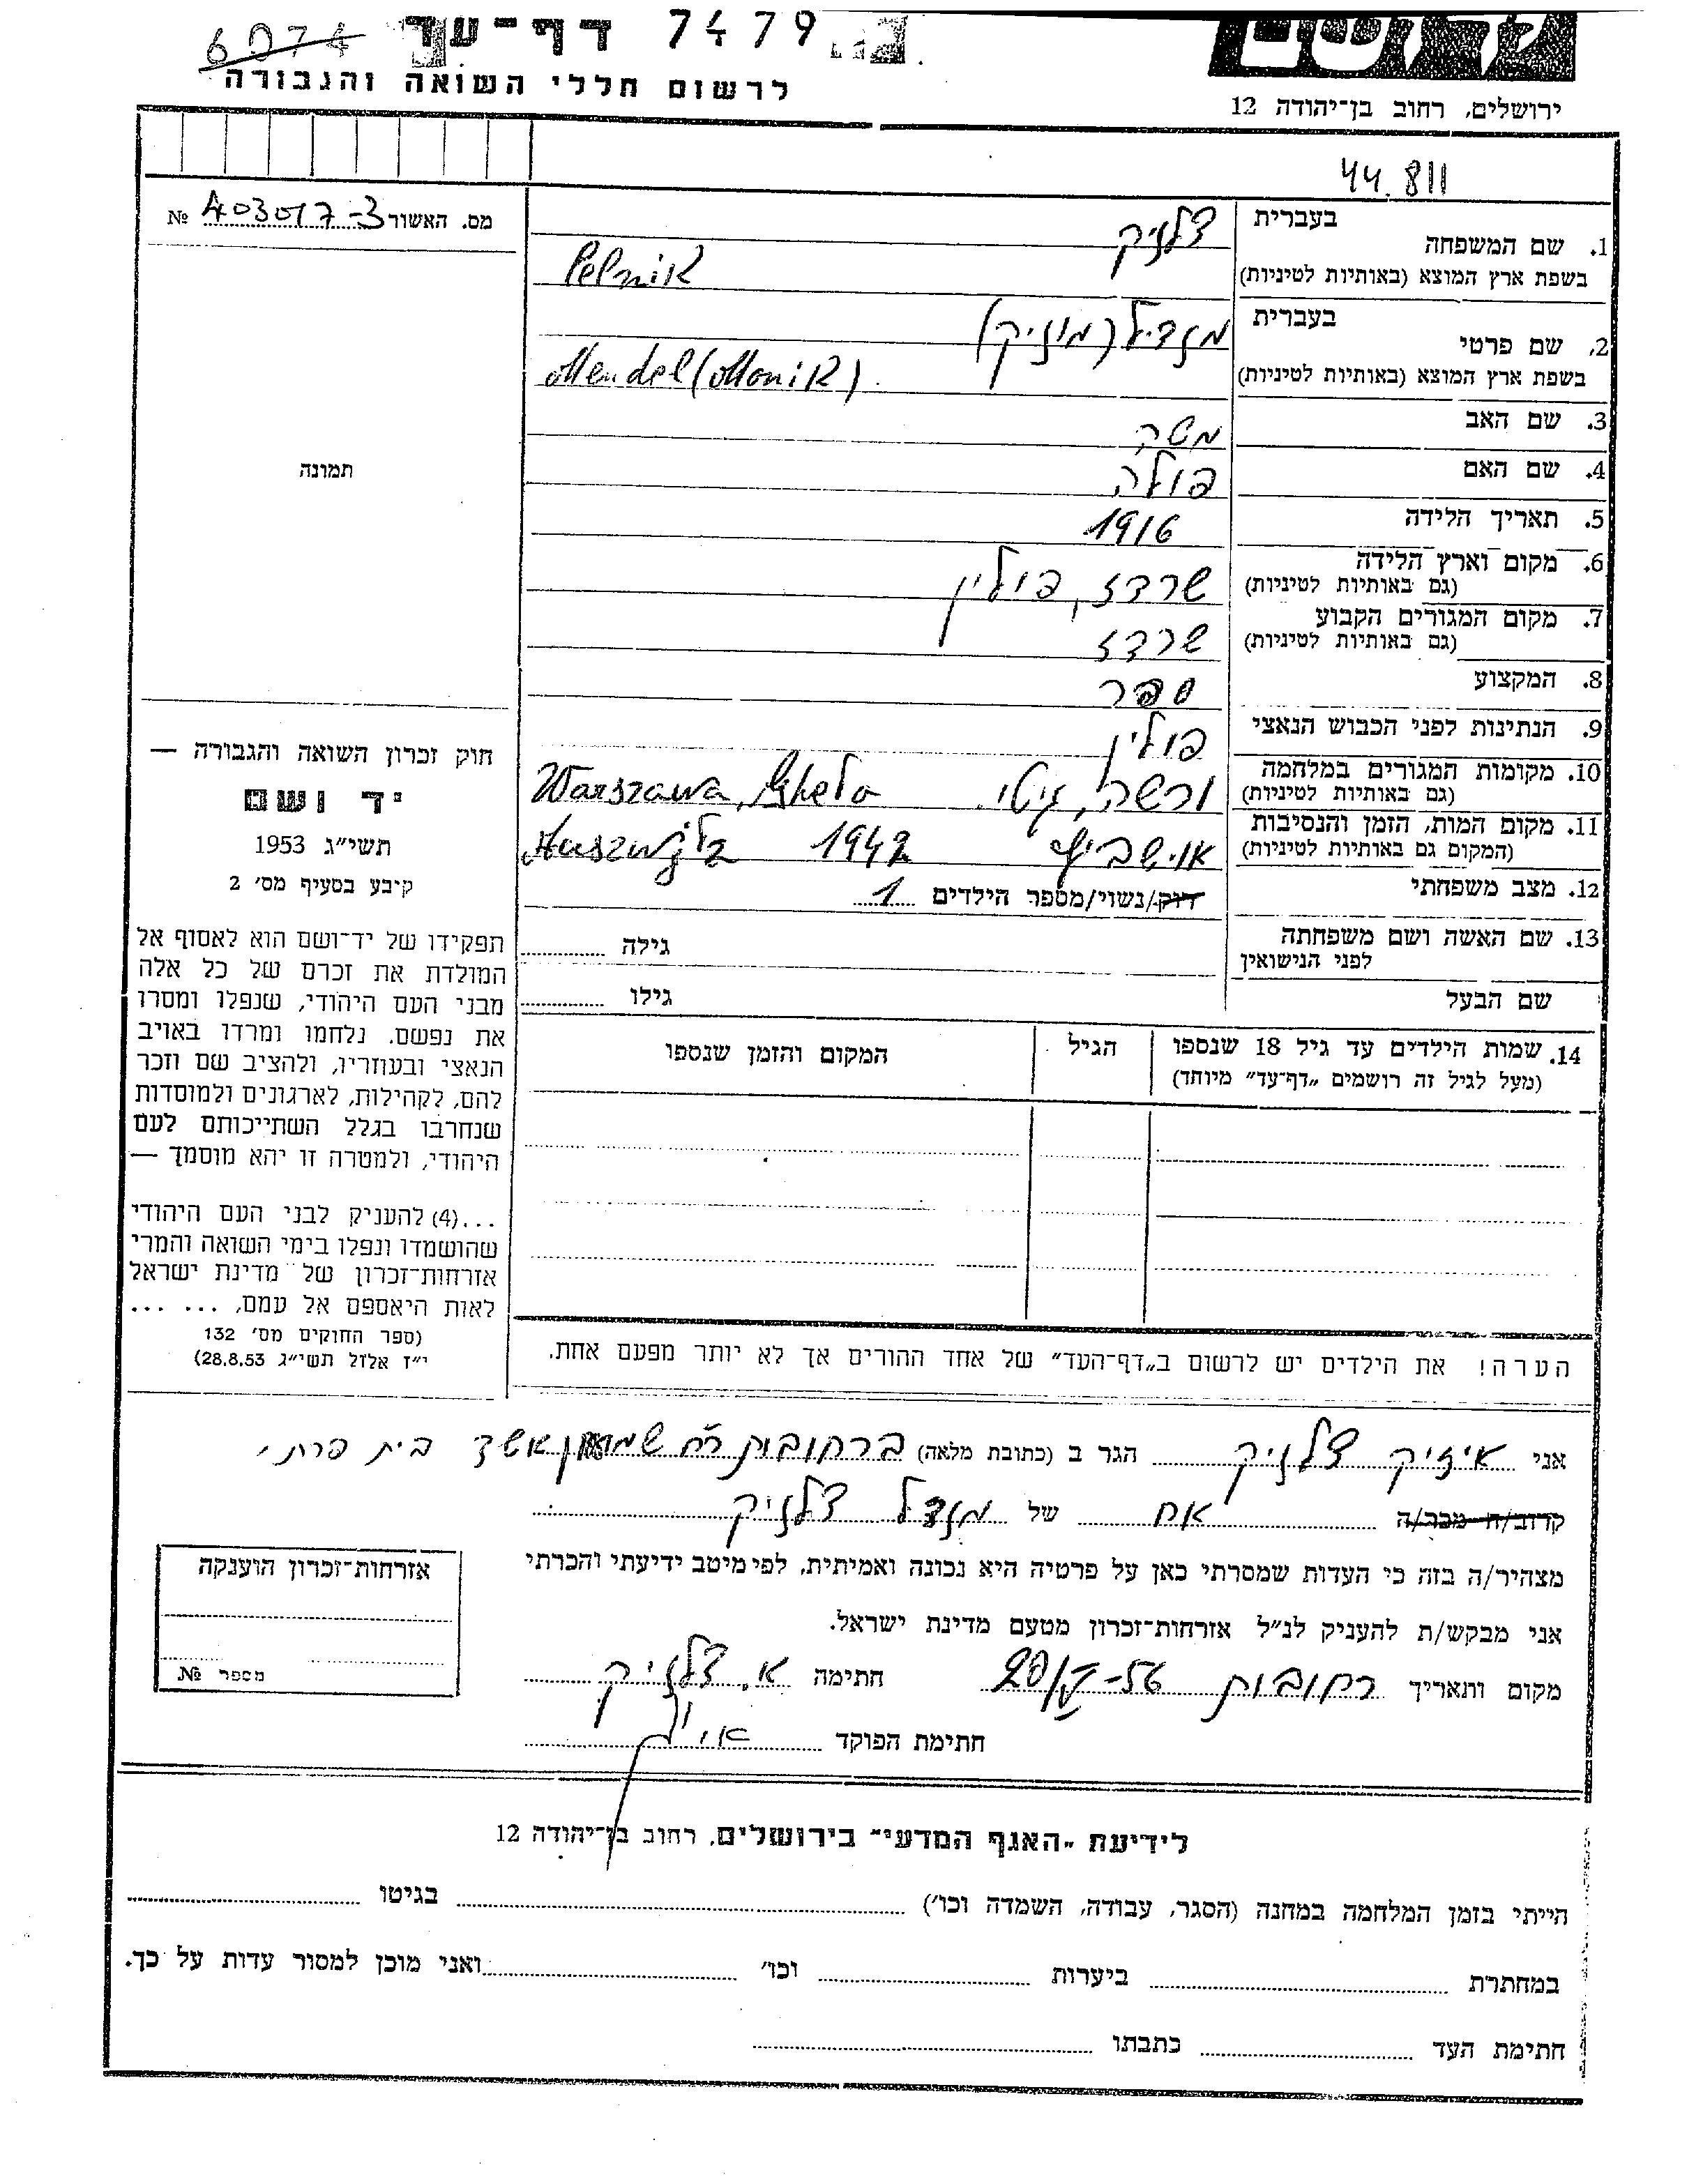 6074 דף־עד 7479
לרשום חללי השואה והגבורה
ירושלים, רחוב בן־יהודה 12
44.811
מס. האשור 403017-3 №
1. שם המשפחה בעברית צלניק
בשפת ארץ המוצא (באותיות לטיניות) Celnik
2. שם פרטי בעברית מנדיל (מוניק)
בשפת ארץ המוצא (באותיות לטיניות) Mendel (Monik)
3. שם האב משה
4. שם האם פולה
5. תאריך הלידה 1916
6. מקום וארץ הלידה שרדז, פולין
(גם באותיות לטיניות)
7. מקום המגורים הקבוע שרדז
(גם באותיות לטיניות)
8. המקצוע ספר
9. הנתינות לפני הכבוש הנאצי פולין
10. מקומות המגורים במלחמה ורשה, גיטו. Warszawa, Gheto
(גם באותיות לטיניות)
11. מקום המות, הזמן והנסיבות אושביץ 1942
(המקום גם באותיות לטיניות)
12. מצב משפחתי רווק/נשוי/מספר הילדים 1
13. שם האשה ושם משפחתה גילה
לפני הנישואין
שם הבעל גילו
14. שמות הילדים עד גיל 18 שנספו הגיל המקום והזמן שנספו
(מעל לגיל זה רושמים „דף־עד” מיוחד)
הערה! את הילדים יש לרשום ב„דף־העד” של אחד ההורים אך לא יותר מפעם אחת.
תמונה
חוק זכרון השואה והגבורה —
יד ושם
תשי״ג 1953
קיבע בסעיף מס׳ 2
תפקידו של יד־ושם הוא לאסוף אל
המולדת את זכרם של כל אלה
מבני העם היהודי, שנפלו ומסרו
את נפשם, נלחמו ומרדו באויב
הנאצי ובעוזריו, ולהציב שם וזכר
להם, לקהילות, לארגונים ולמוסדות
שנחרבו בגלל השתייכותם לעם
היהודי, ולמטרה זו יהא מוסמך —
...(4) להעניק לבני העם היהודי
שהושמדו ונפלו בימי השואה והמרי
אזרחות־זכרון של מדינת ישראל
לאות היאספם אל עמם, ... ...
(ספר החוקים מס׳ 132
י״ז אלול תשי״ג 28.8.53)
אני איזיק צלניק הגר ב (כתובת מלאה) ברחובות רח בית פרתי
קרוב/ה מכר/ה אח של מנדל צלניק
מצהיר/ה בזה כי העדות שמסרתי כאן על פרטיה היא נכונה ואמיתית, לפי מיטב ידיעתי והכרתי
אני מבקש/ת להעניק לנ״ל אזרחות־זכרון מטעם מדינת ישראל.
מקום ותאריך רחובות חתימה א. צלניק
חתימת הפוקד
אזרחות־זכרון הוענקה
מספר №
לידיעת „האגף המדעי” בירושלים, רחוב בן־יהודה 12
הייתי בזמן המלחמה במחנה (הסגר, עבודה, השמדה וכו׳) בגיטו
במחתרת ביערות וכו׳ ואני מוכן למסור עדות על כך.
חתימת העד כתבתו